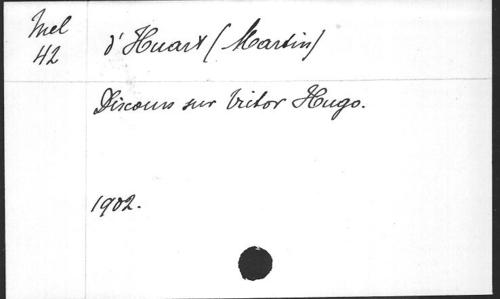 Mel
42
d'Huart (Martin)
Discours sur Victor Hugo.
1902.